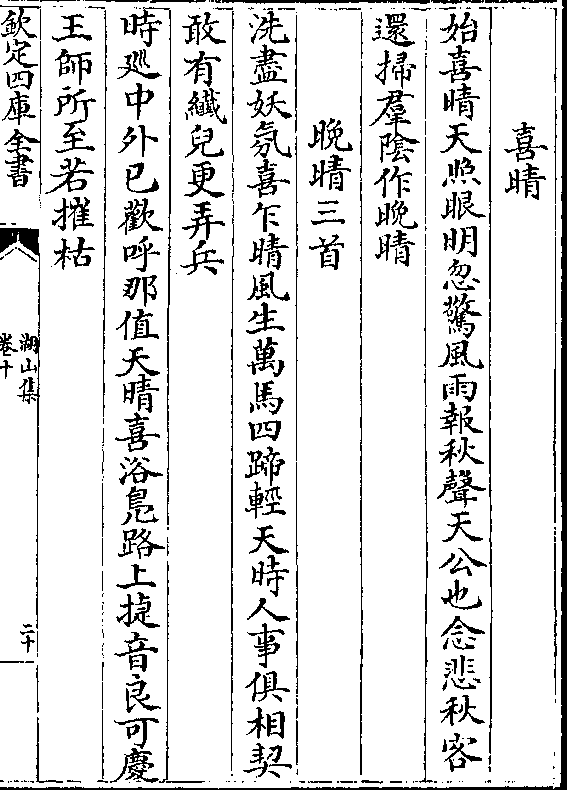 喜晴
始喜晴天照眼明忽驚風雨報秋聲天公也念悲秋客
還掃羣陰作晚晴
晚晴三首
洗盡妖氛喜乍晴風生萬馬四蹄輕天時人事俱相契
敢有纖兒更弄兵
時廵中外已歡呼那值天晴喜浴鳬路上捷音良可慶
王師所至若摧枯
欽定四庫全書
湖山集
卷十
二十